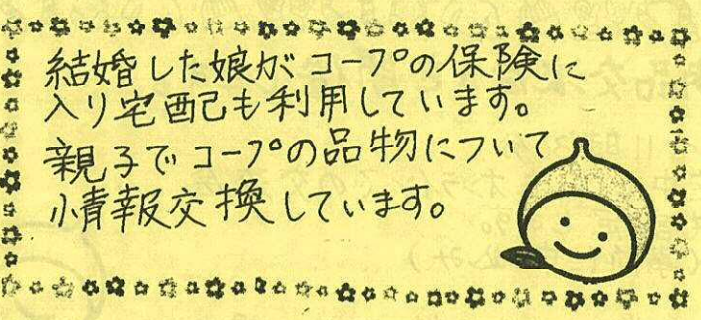 結婚した娘がコープの保険に
入り宅配も利用しています。
親子でコープの品物について
情報交換しています。